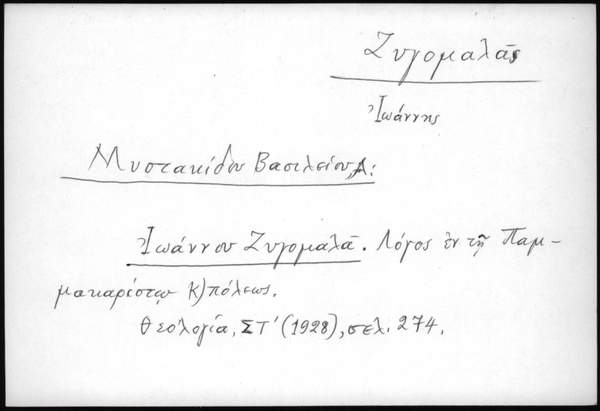 Ζυγομαλᾶς
Ἰωάννης
Μυστακίδου Βασιλείου, Α:
Ἰωάννου Ζυγομαλᾶ. Λόγος ἐν τῇ Παμ-
μακαρίστῳ Κ)πόλεως.
Θεολογία, ΣΤ' (1928), σελ. 274.